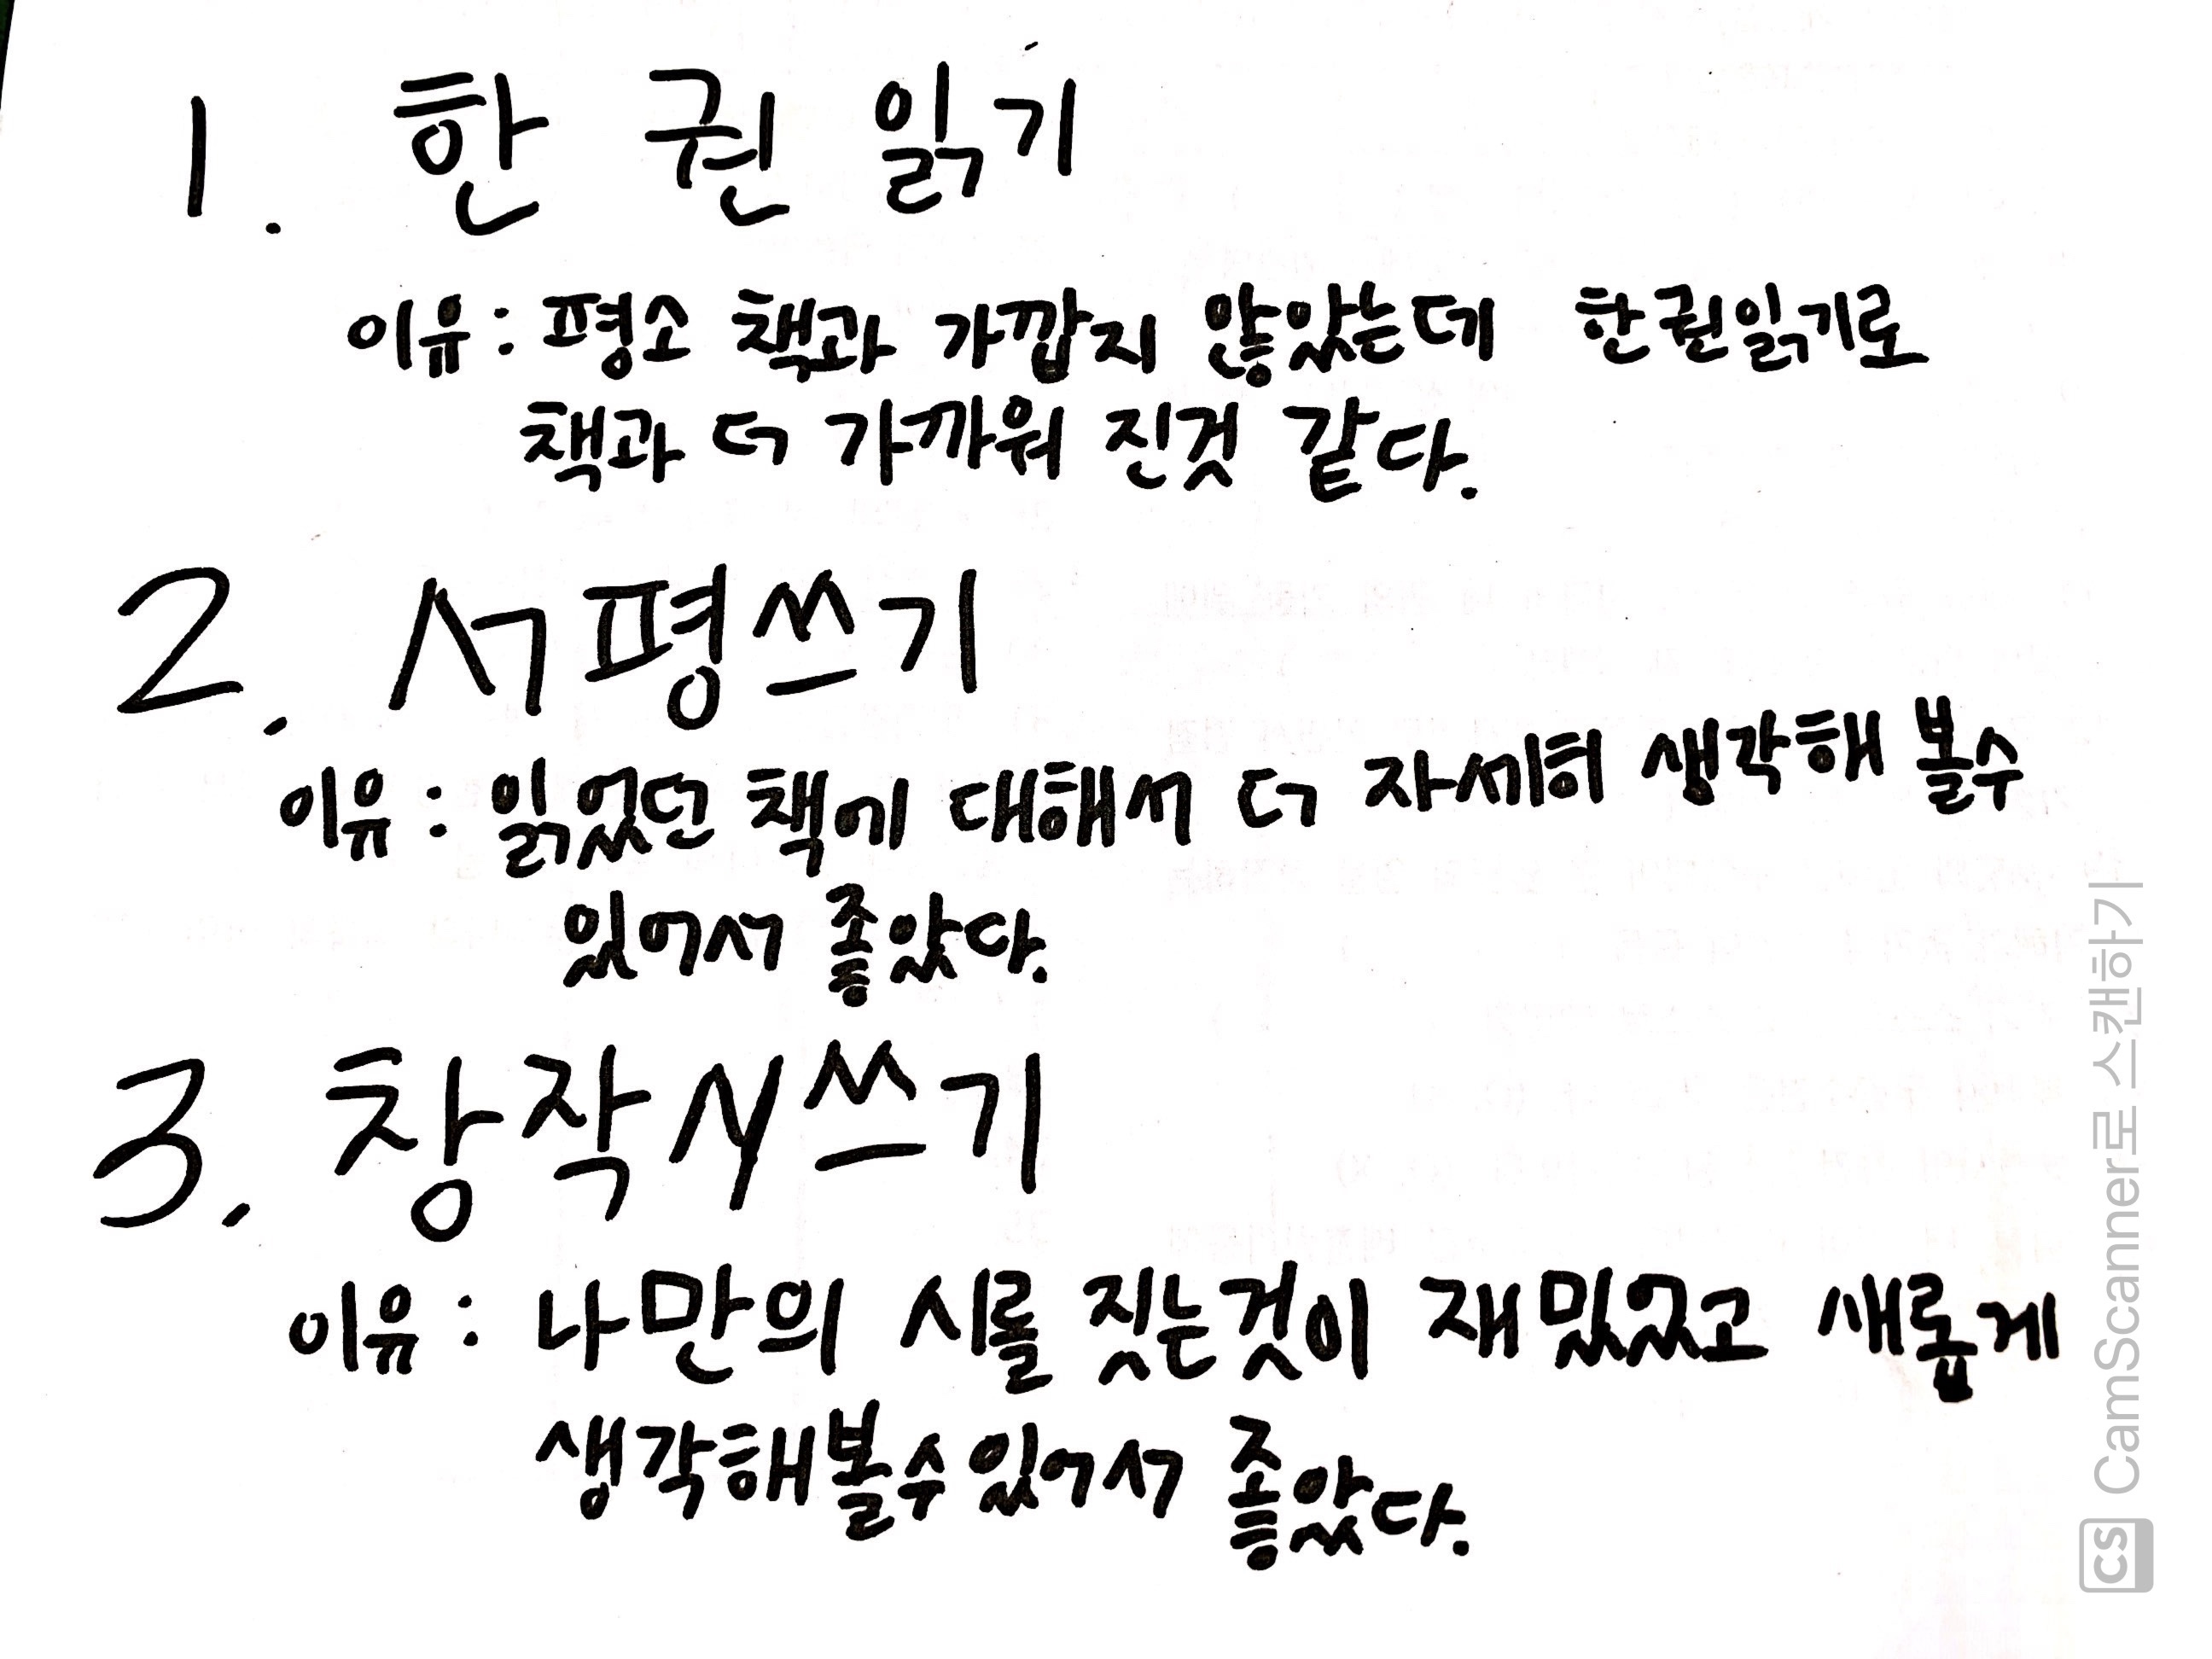 1. 한 권 읽기
이유: 평소 책과 가깝지 않았는데 한권읽기로
책과 더 가까워 진것 같다.
2. 서평쓰기
이유: 읽었던 책에 대해서 더 자세히 생각해 볼수
있어서 좋았다.
3. 창작시쓰기
이유: 나만의 시를 짓는것이 재밌었고 새롭게
생각해볼수있어서 좋았다.
CS CamScanner로 스캔하기